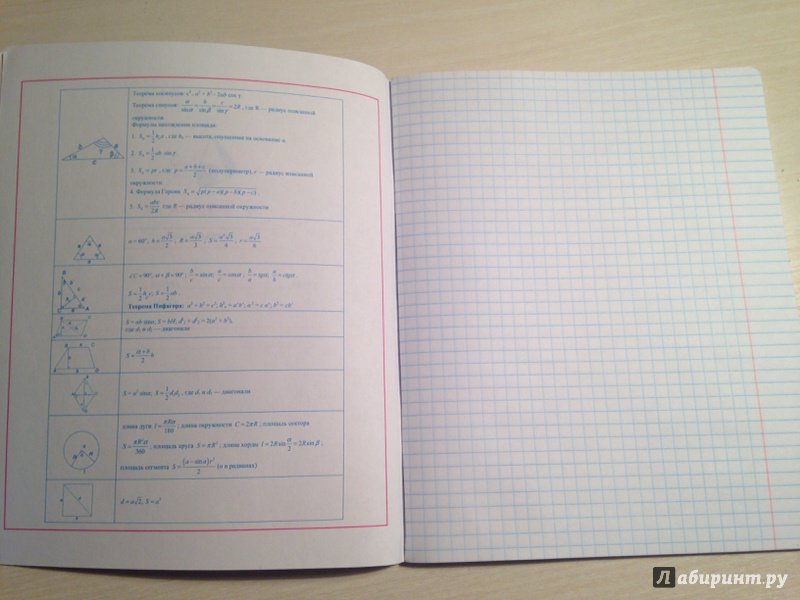 Теорема косинусов: c² = a² + b² - 2ab cos γ.
Теорема синусов: a/sin α = b/sin β = c/sin γ = 2R, где R — радиус описанной
окружности
Формулы нахождения площади:
1. S = 1/2 hₐa, где hₐ — высота, опущенная на основание a.
2. S = 1/2 ab sin γ.
3. S = pr, где p = (a + b + c)/2 (полупериметр), r — радиус вписанной
окружности.
4. Формула Герона S = √p(p – a)(p – b)(p – c).
5. S = abc/2R где R — радиус описанной окружности
α = 60°, h = a√3/2; R = a√3/3; S = a²√3/4; r = a√3/6
∠C = 90°, α + β = 90°; b/c = sin α; a/c = cos α; b/a = tg α; a/b = ctg α.
S = 1/2 h c; S = 1/2 ab
Теорема Пифагора: a² + b² = c²;
S = ab sin α; S = bH; d²₁ + d²₂ = 2(a² + b²),
где d₁ и d₂ — диагонали
S = (a + b)/2 h
S = a² sin α; S = 1/2 d₁d₂, где d₁ и d₂ — диагонали
длина дуги l = πRα/180; длина окружности C = 2πR; площадь сектора
S = πR²α/360; площадь круга S = πR²; длина хорды l = 2R sin α/2 = 2R sin β;
площадь сегмента S = (α – sin α)r²/2 (α в радианах)
d = a√2, S = a²
Лабиринт.ру